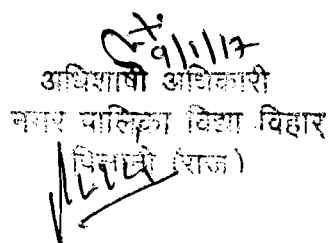 9/1/17
अधिशाषी अधिकारी
नगर पालिका विद्या विहार
पिलानी (राज)